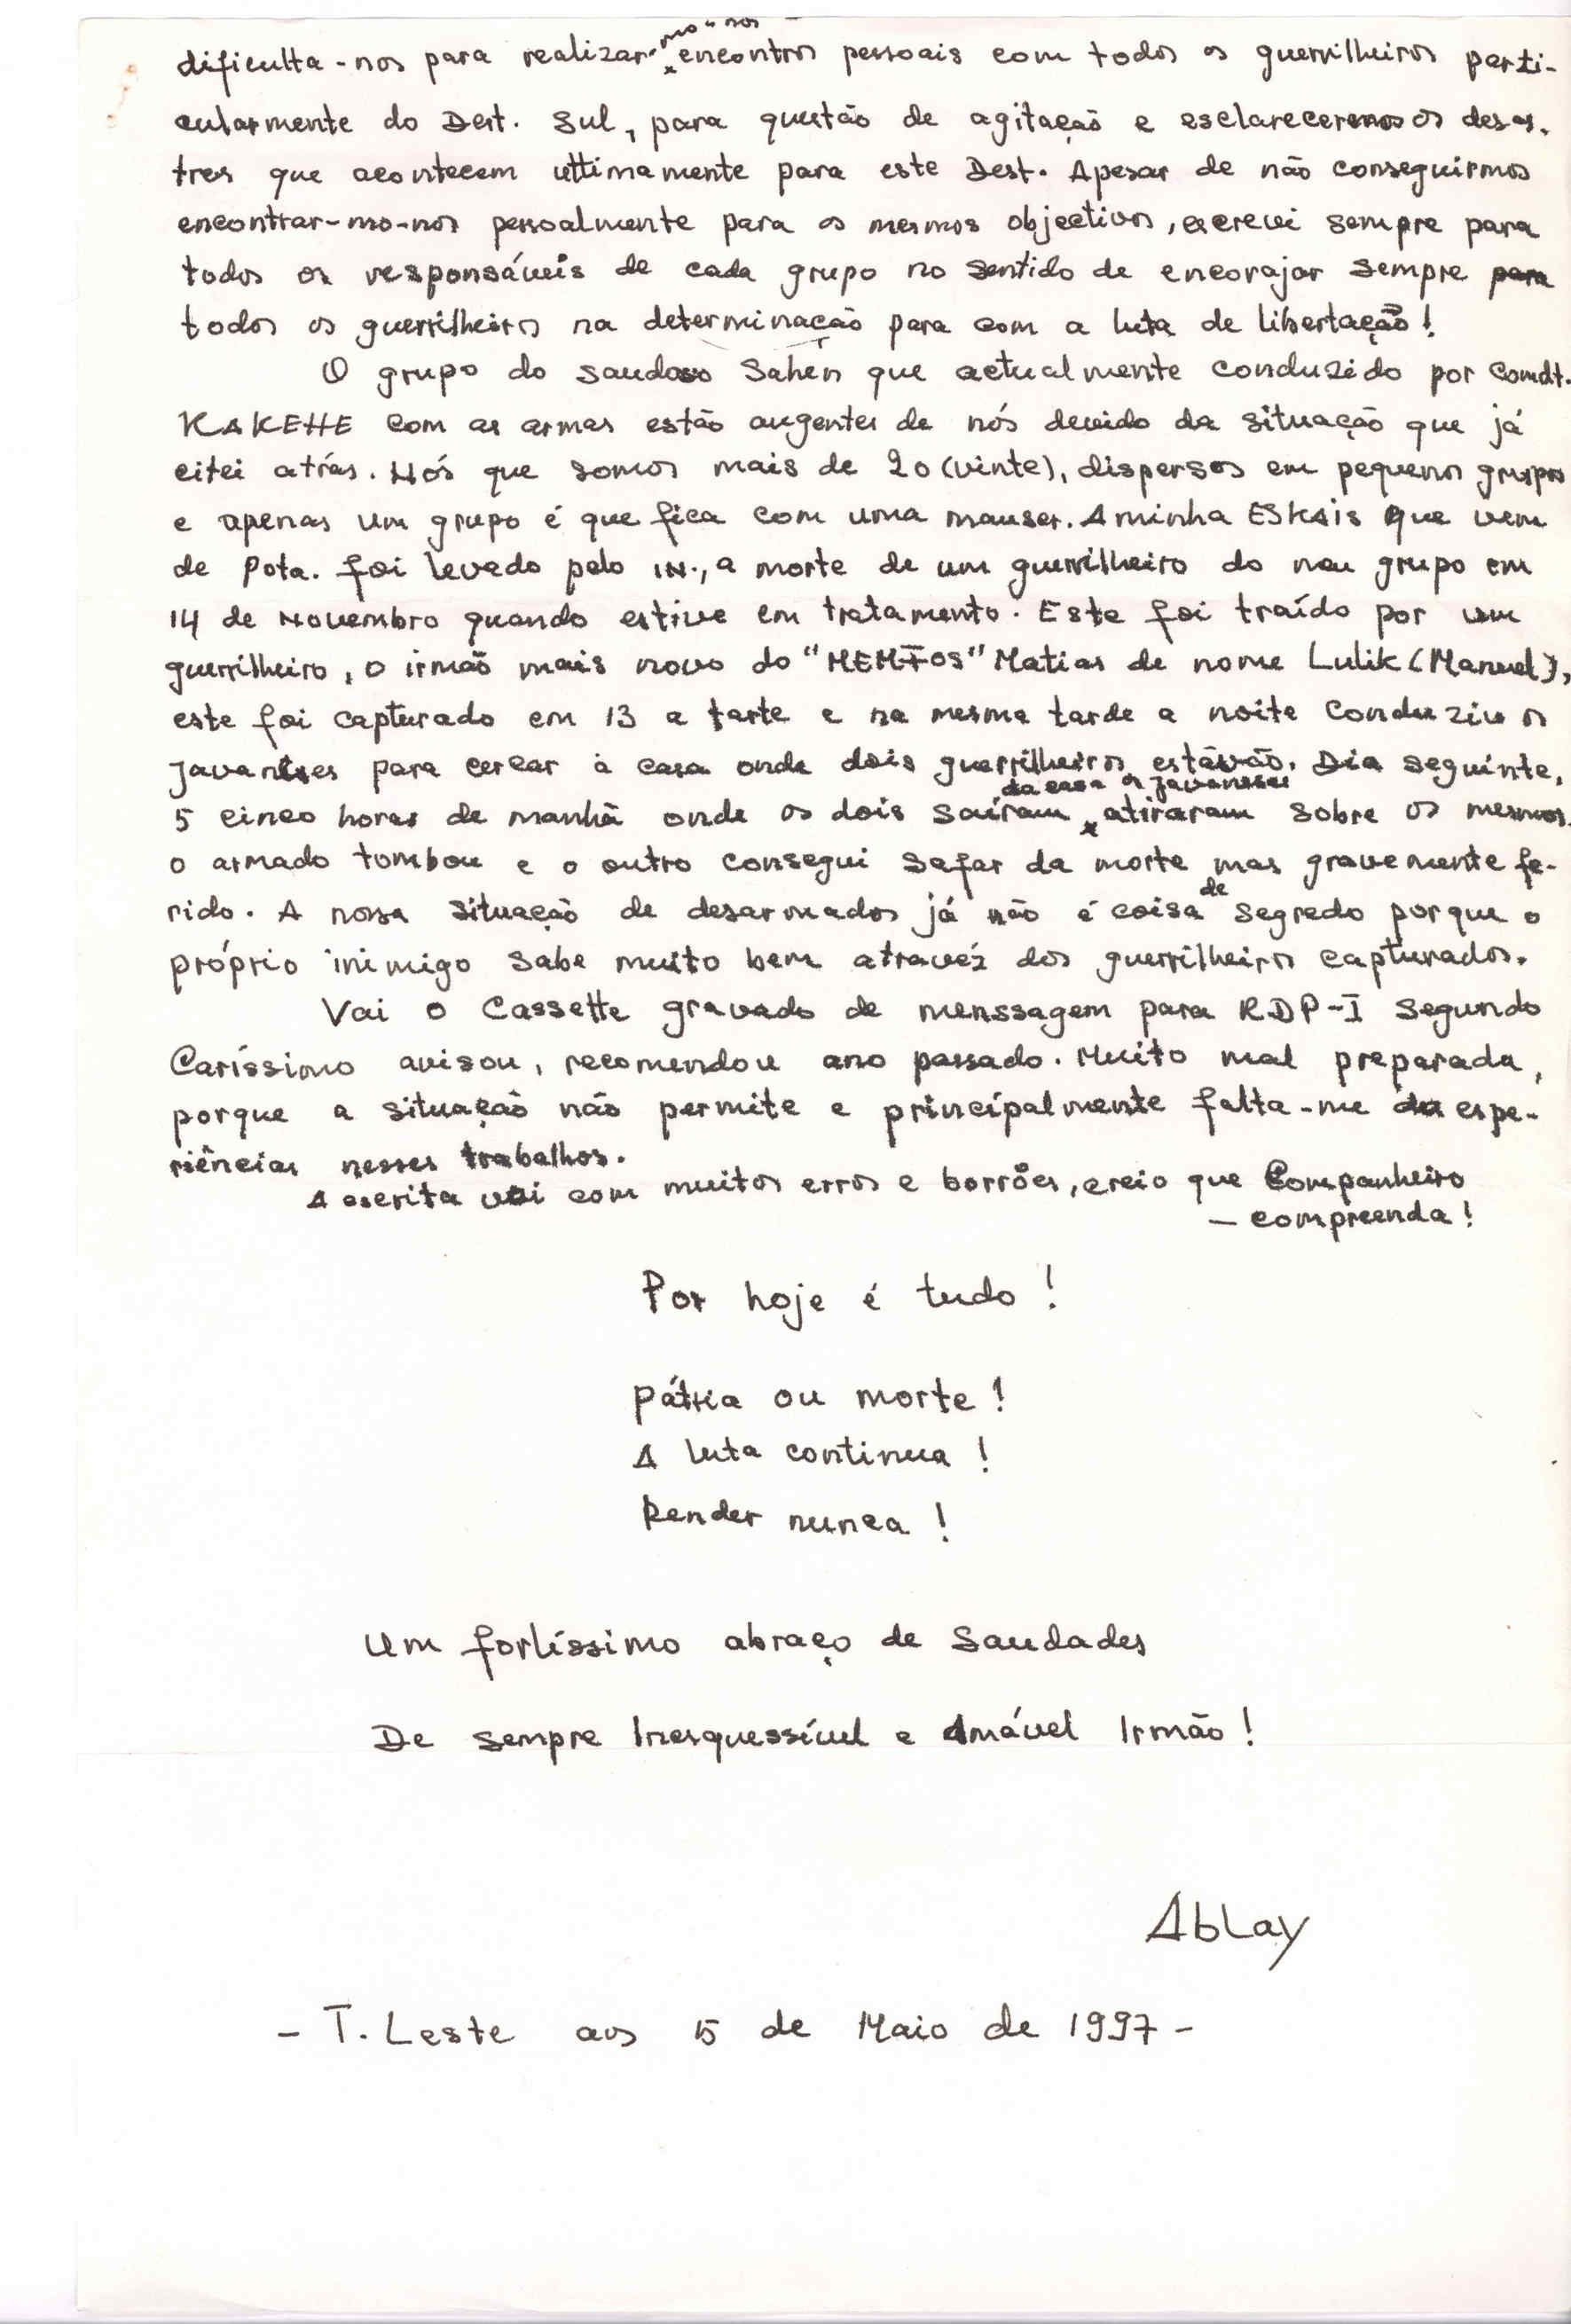 dificulta-nos para realizar-mo-nos encontros pessoais com todos os guerrilheiros parti-
cularmente do Dest. Sul, para questão de agitação e esclarecermos os desas.
tres que acontecem ultimamente para este Dest. Apesar de não conseguirmos
encontrar-mo-nos pessoalmente para os mesmos objectivos, escrevi sempre para
todos os responsáveis de cada grupo no sentido de encorajar sempre para
todos os guerrilheiros na determinação para com a luta de libertação!
O grupo do saudoso Sahen que actualmente conduzido por Comdt.
KAKEHE com as armas estão augentes de nós devido da situação que já
citei atrás. Nós que somos mais de 20 (vinte), dispersos em pequenos grupos
e apenas um grupo é que fica com uma mauser. A minha ESKAIS que vem
de Pota. foi levado pelo IN., a morte de um guerrilheiro do meu grupo em
14 de Novembro quando estive em tratamento. Este foi traído por um
guerrilheiro, o irmão mais novo do Matias de nome Lulik (Manuel),
este foi capturado em 13 a tarte e na mesma tarde a noite conduziu os
javaneses para cercar à casa onde dois guerrilheiros estávão. Dia seguinte,
5 cinco horas de manhã onde os dois saíram da casa os javaneses atiraram sobre os mesmos.
o armado tombou e o outro consegui safar da morte mas gravemente fe-
rido. A nossa situação de desarmados já não é coisa de segredo porque o
próprio inimigo sabe muito bem atravéz dos guerrilheiros capturados.
Vai o Cassette gravado de menssagem para RDP-I segundo
Caríssimo avisou, recomendou ano passado. Muito mal preparada,
porque a situação não permite e principalmente falta-me espe-
riências nesses trabalhos.
A escrita vai com muitos erros e borrões, creio que Companheiro
- compreenda!
Por hoje é tudo!
Pátria ou morte!
A luta continua!
Render nunca!
Um fortíssimo abraço de Saudades
De sempre Inesquessível e Amável Irmão!
Ablay
- T. Leste aos 5 de Maio de 1997 -